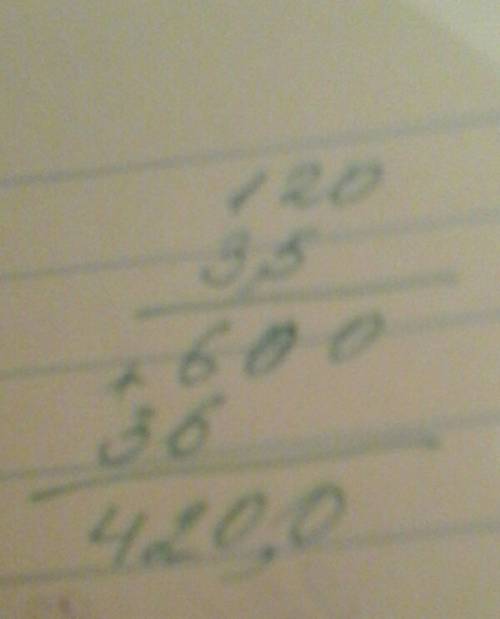 120
3,5
600
+
36
420,0